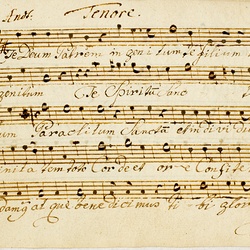 And: Tenore.
Te Deum Patrem in genitum te filium
genitum Te Spiritu
um Paraclitum Sanctū et in di vi du
nita tem toto Corde et or e Confite
damq at que bene dicimus ti bi glor